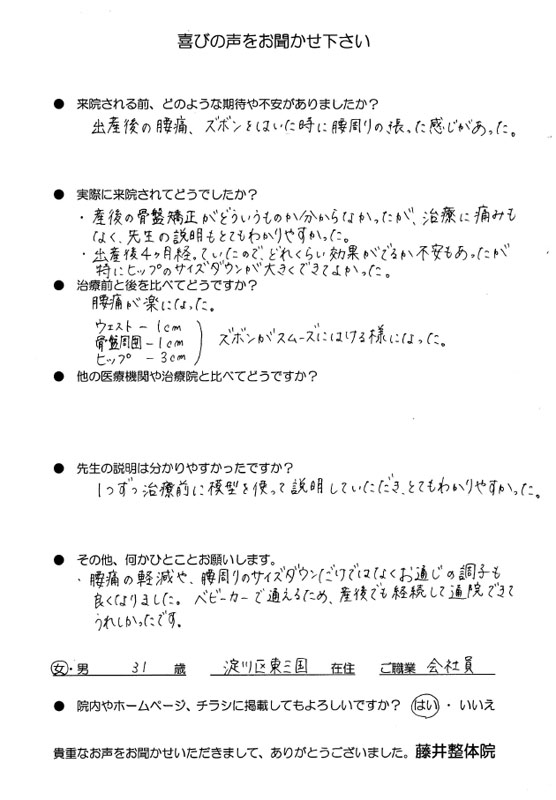 喜びの声をお聞かせ下さい
● 来院される前、どのような期待や不安がありましたか?
出産後の腰痛、ズボンをはいた時に腰周りの張った感じがあった。
● 実際に来院されてどうでしたか?
・産後の骨盤矯正がどういうものか分からなかったが、治療に痛みも
なく、先生の説明もとてもわかりやすかった。
・出産後4ヶ月経っていたので、どれくらい効果がでるか不安もあったが
特にヒップのサイズダウンが大きくできてよかった。
● 治療前と後を比べてどうですか?
腰痛が楽になった。
ウェスト − 1cm
骨盤周囲 − 1cm ズボンがスムーズにはける様になった。
ヒップ − 3cm
● 他の医療機関や治療院と比べてどうですか?
● 先生の説明は分かりやすかったですか?
1つずつ治療前に模型を使って説明していただき、とてもわかりやすかった。
● その他、何かひとことお願いします。
・腰痛の軽減や、腰周りのサイズダウンだけではなくお通じの調子も
良くなりました。ベビーカーで通えるため、産後でも継続して通院できて
うれしかったです。
女・男 31 歳 淀川区東三国 在住 ご職業 会社員
● 院内やホームページ、チラシに掲載してもよろしいですか? はい・いいえ
貴重なお声をお聞かせいただきまして、ありがとうございました。藤井整体院